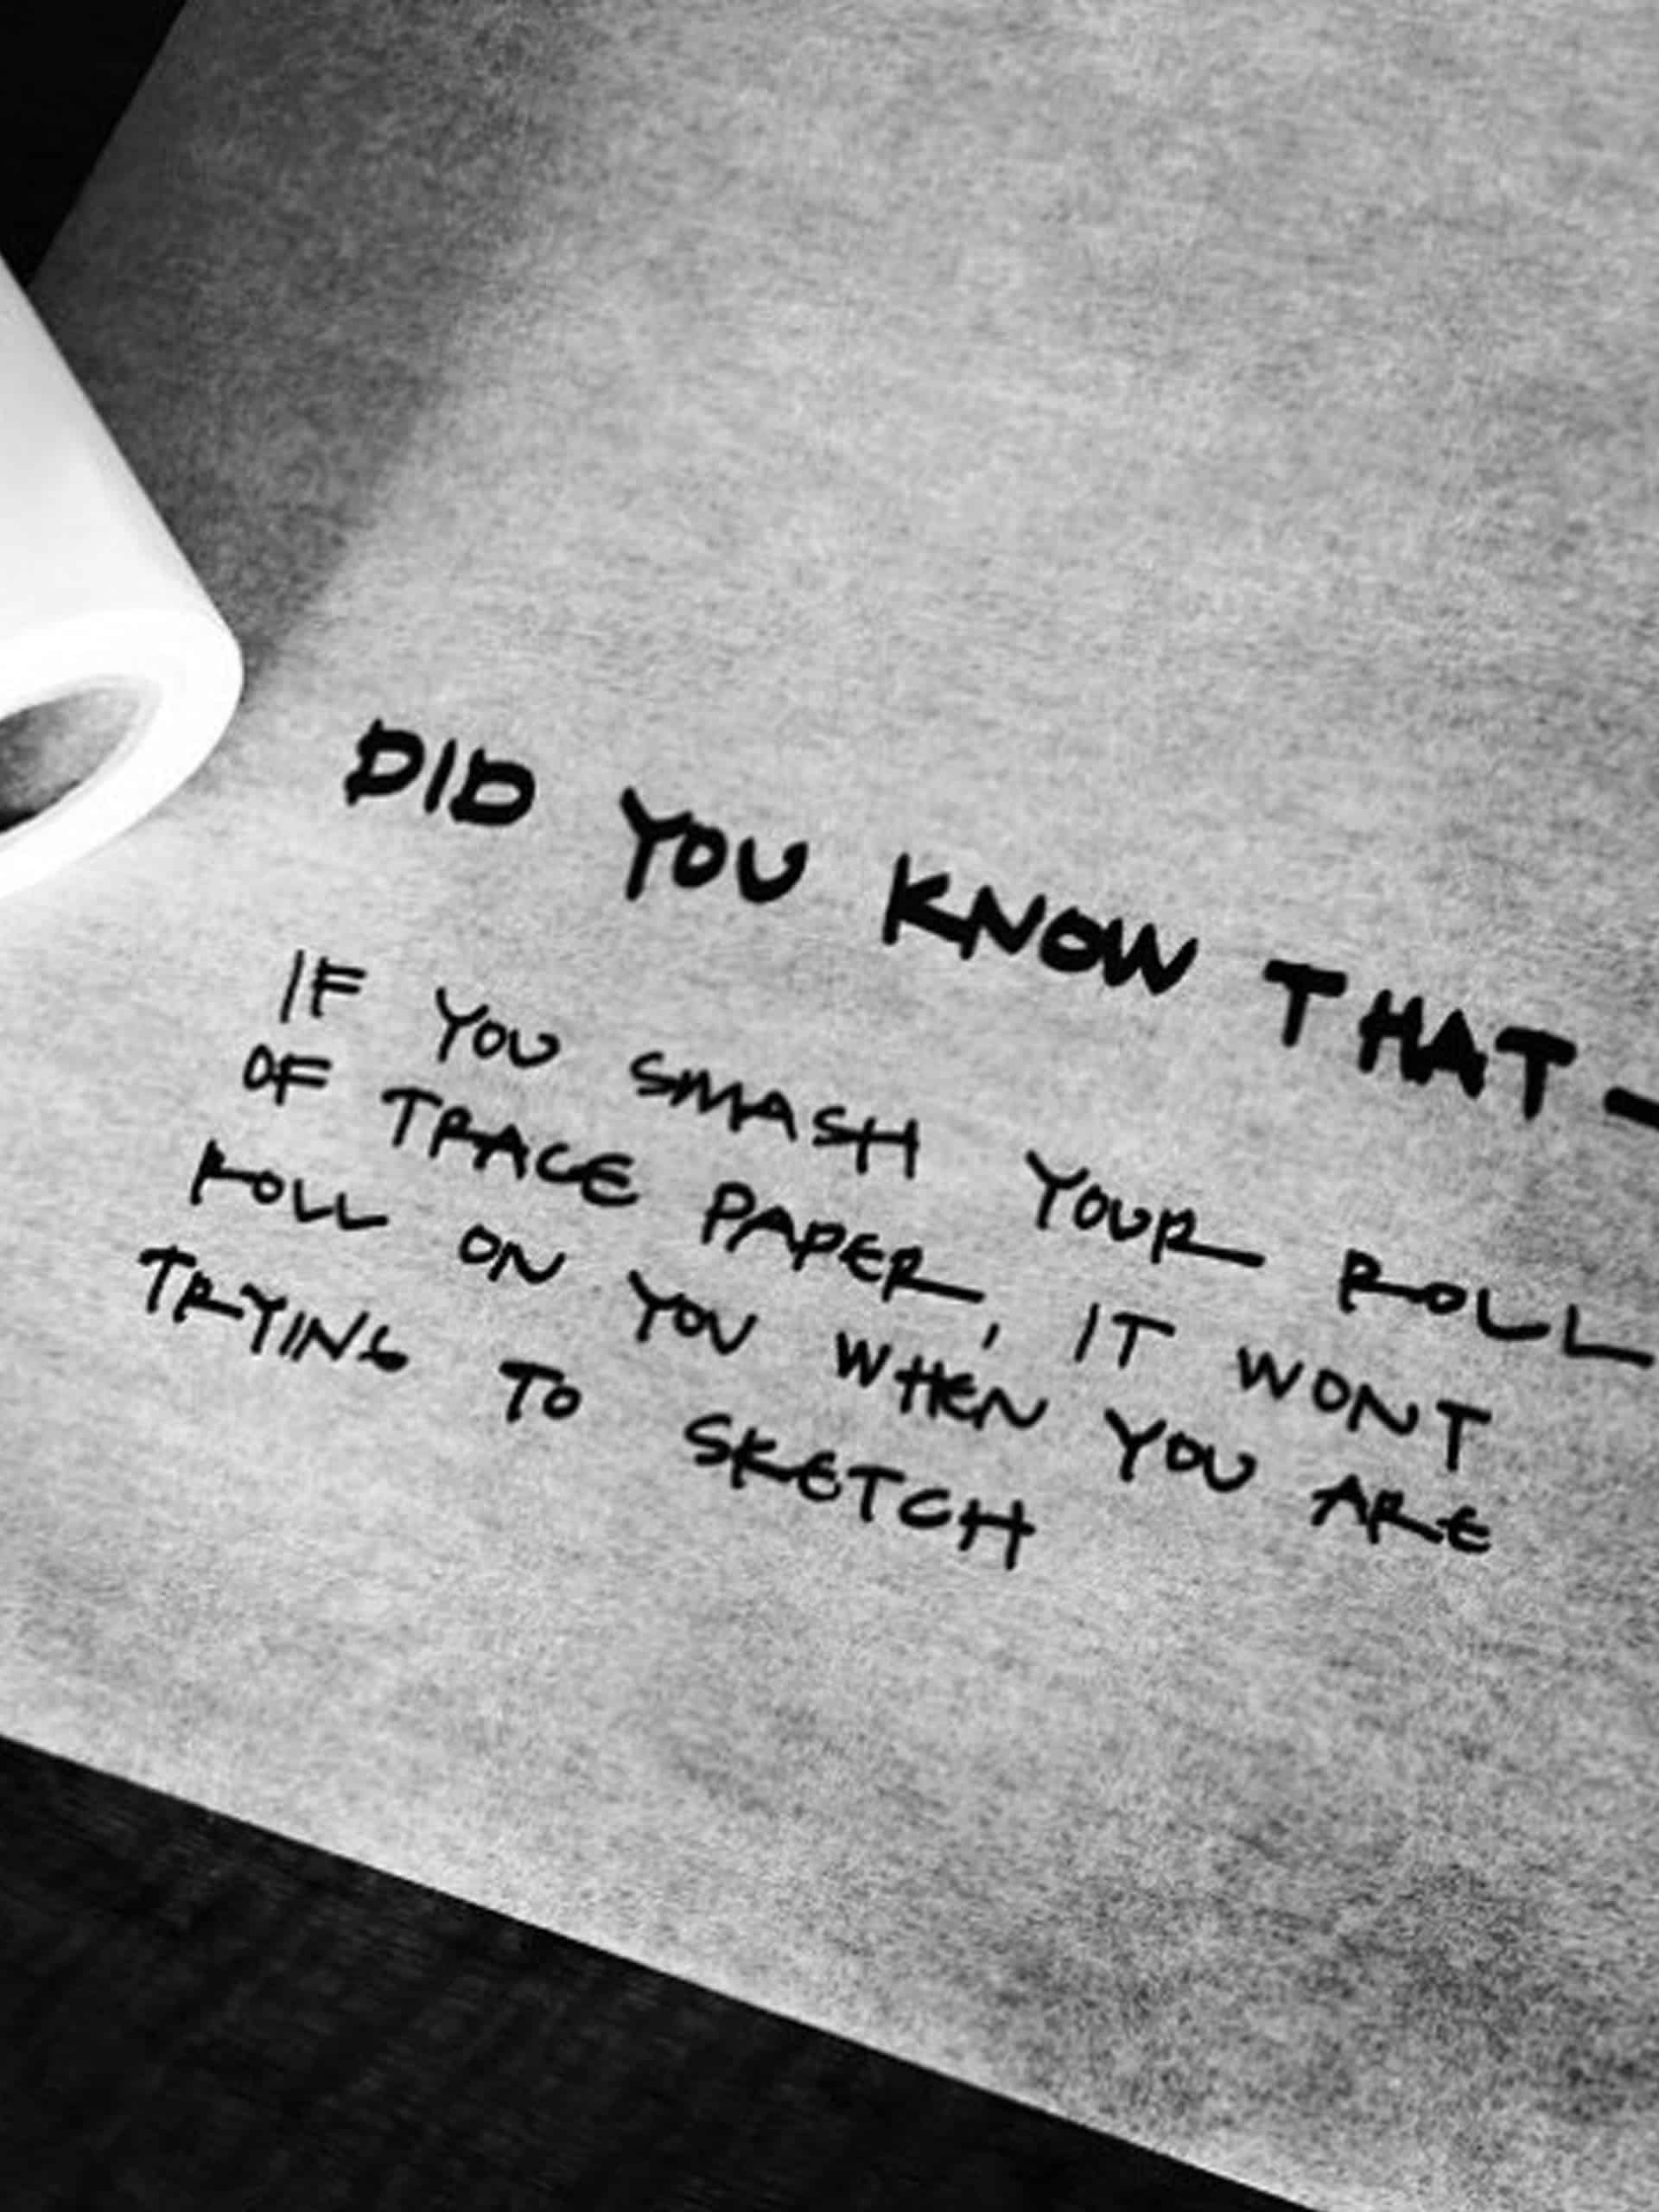 DID YOU KNOW THAT-
IF YOU SMASH YOUR ROLL
OF TRACE PAPER, IT WONT
ROLL ON YOU WHEN YOU ARE
TRYING TO SKETCH